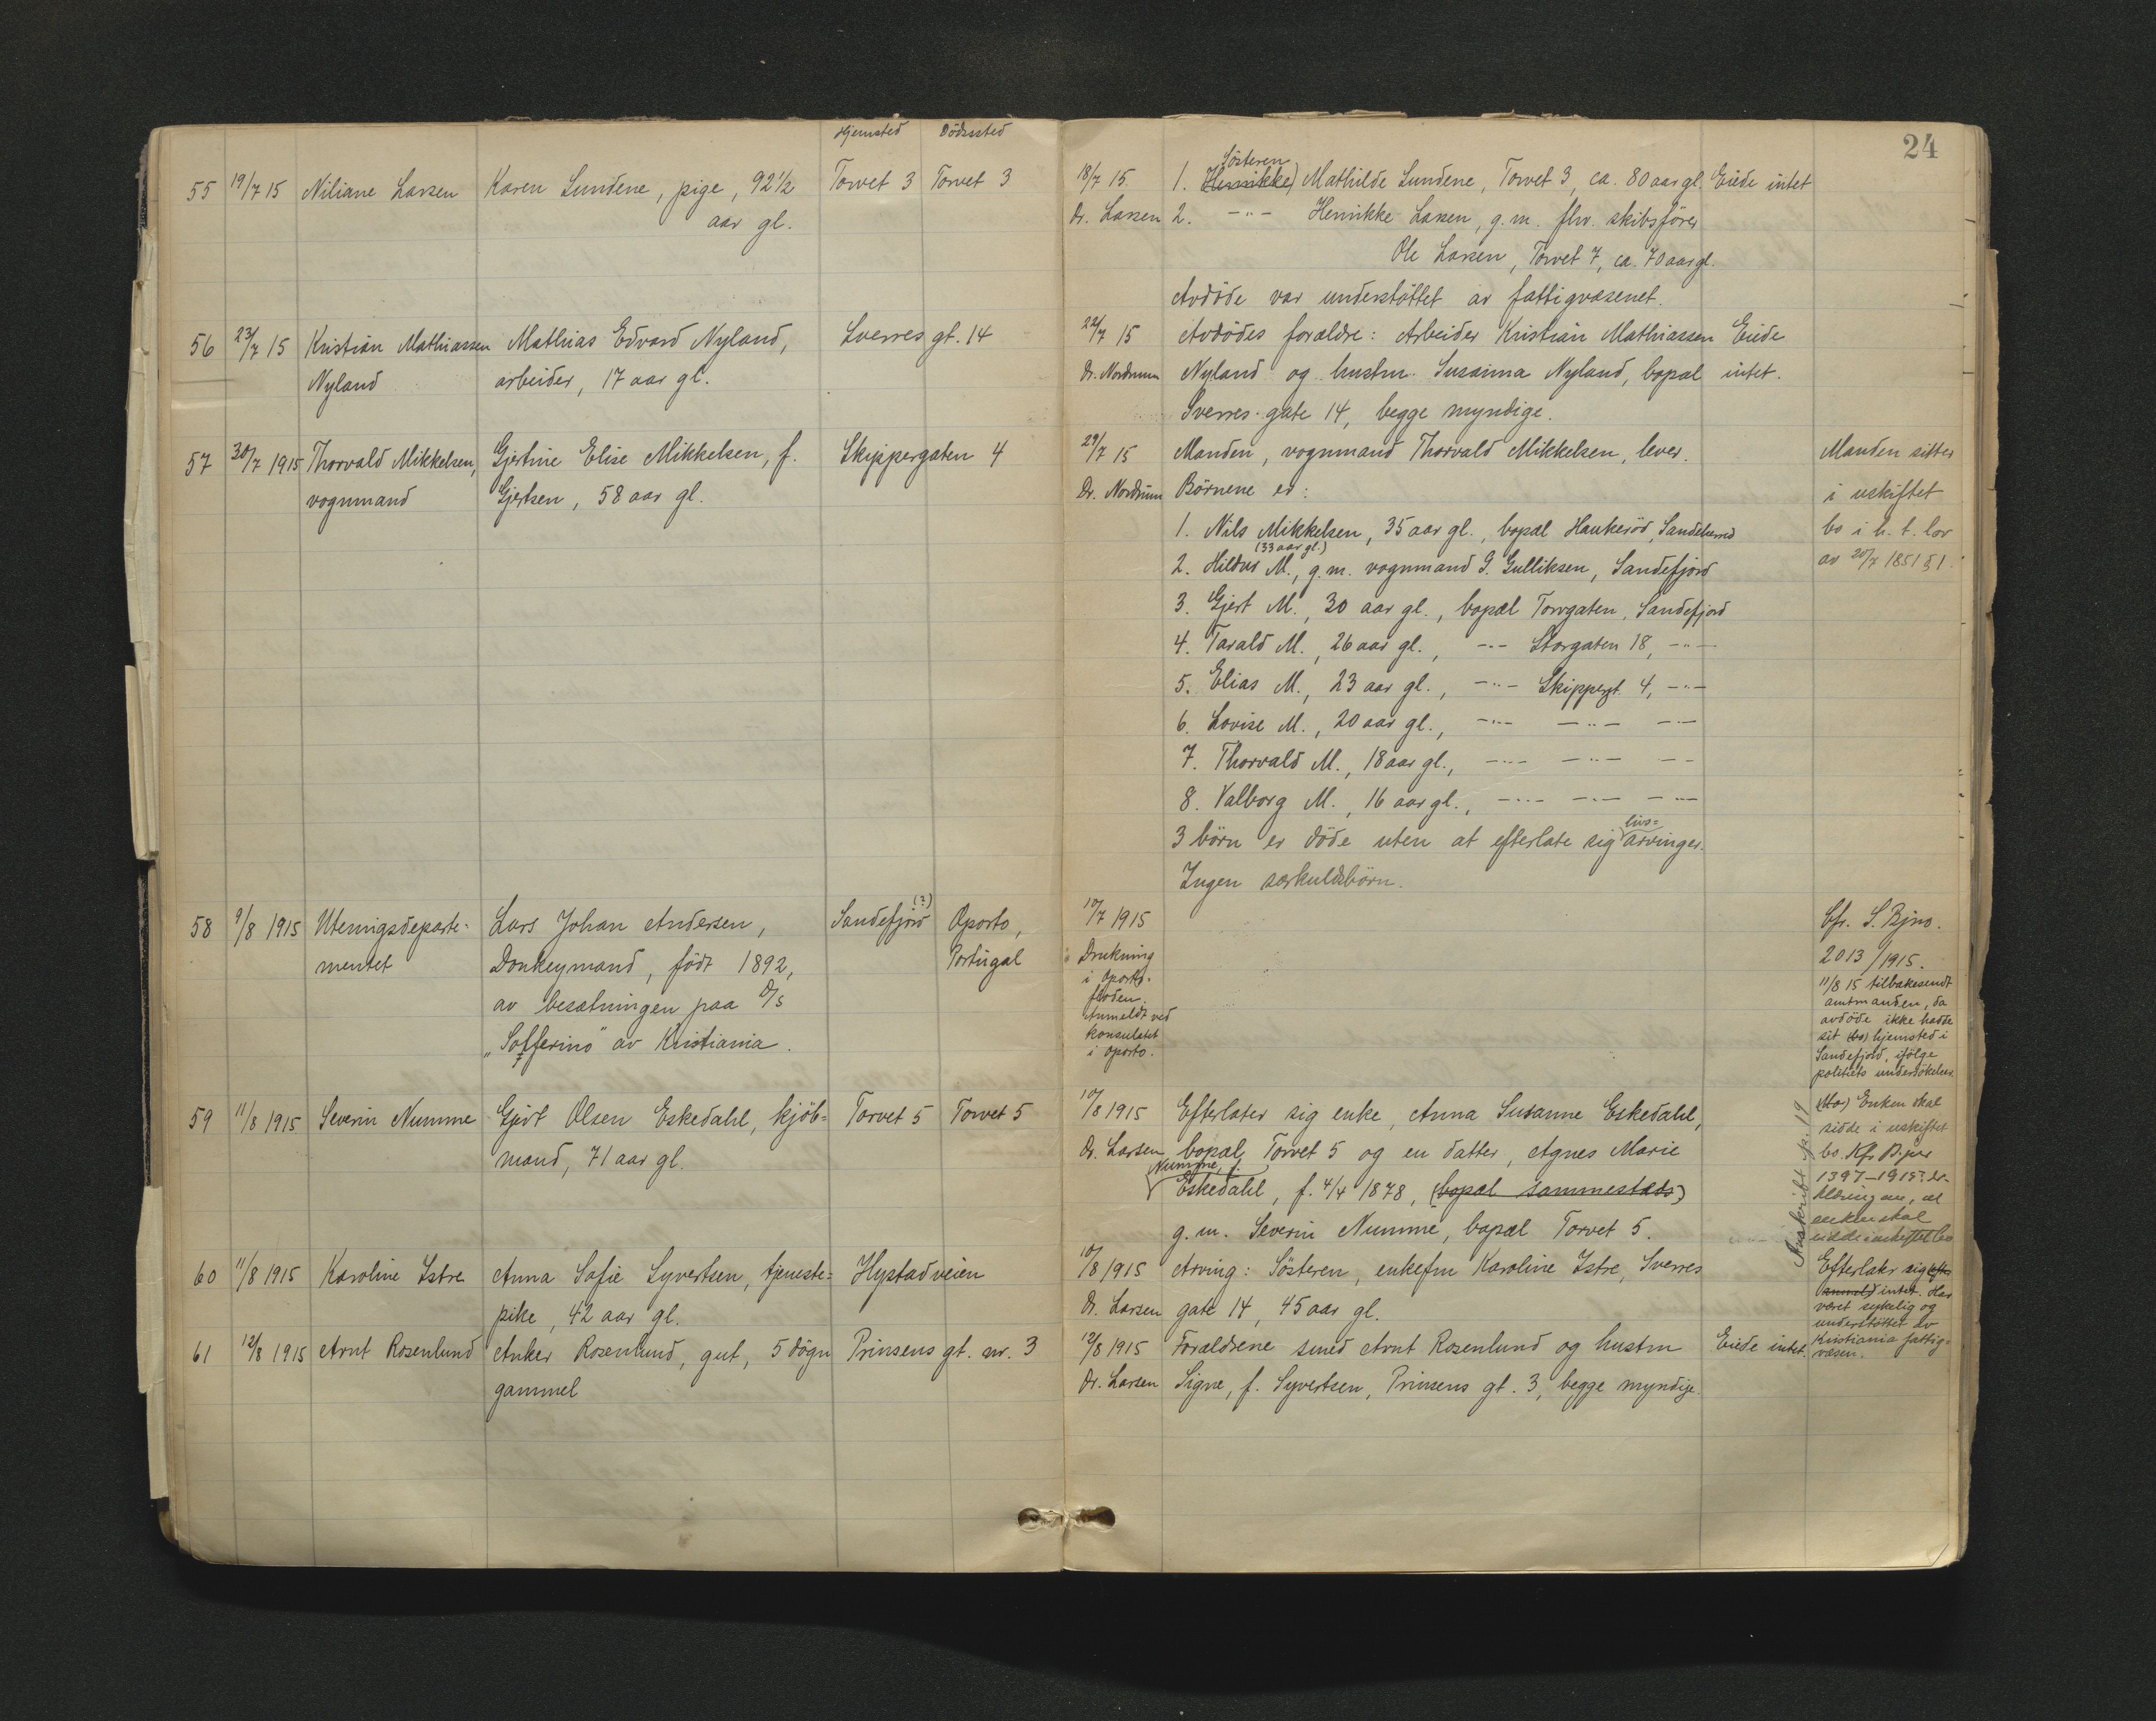 Hjemsted Dödssted
24
55 19/7 15 Niliane Larsen Karen Lundene, pige, 92 1/2 Torvet 3 Torvet 3
aar gl.
18/7 15. Söstere
1. (Henrikke) Mathilde Lundene, Torvet 3, ca. 80 aar gl. Eiede intet
Dr. Larsen 2. -"- Henrikke Larsen, g.m. fhv. skibsförer
Ole Larsen, Torvet 7, ca. 70 aar gl.
Avdöde var understöttet av fattigvæsenet.
56 23/7 15 Kristian Mathiassen Mathias Edvard Nyland, Sverres gt. 14
Nyland arbeider, 17 aar gl.
22/7 15 Avdödes forældre: Arbeider Kristian Mathiassen Eiede
Dr. Nordrum Nyland og hustru Susanna Nyland, bopæl intet.
Sverres gate 14, begge myndige.
57 30/7 1915 Thorvald Mikkelsen, Gjertine Elise Mikkelsen, f. Skippergaten 4
vognmand Gjertsen, 58 aar gl.
29/7 15 Manden, vognmand Thorvald Mikkelsen, lever. Manden sitter
Dr. Nordrum Börnene er: i uskiftet
1. Nils Mikkelsen, 35 aar gl., bopæl Haukeröd, Sandeherred bo i h. t. lov
(33 aar gl.)
2. Hildur M., g.m. vognmand G. Gulliksen, Sandefjord av 20/7 1851 § 1.
3. Gjert M., 30 aar gl., bopæl Torvgaten, Sandefjord
4. Tarald M., 26 aar gl., -"- Storgaten 18, -"-
5. Elias M., 23 aar gl., -"- Skippergt. 4, -"-
6. Lovise M., 20 aar gl., -"- -"- -"-
7. Thorvald M., 18 aar gl., -"- -"- -"-
8. Valborg M., 16 aar gl., -"- -"- -"-
livs=
3 börn er döde uten at efterlate sig arvinger.
Ingen særkuldsbörn.
58 9/8 1915 Utenrigsdeparte- Lars Johan Andersen, Sandefjord (?) Oporto,
mentet Donkeymand, födt 1892, Portugal
av besætningen paa D/S
"Solferino" av Kristiania.
10/7 1915
Drukning
i Oporto-
floden.
Anmeldt ved
konsulatet
i Oporto.
Cfr. S. Bjno.
2013/1915.
11/8 15 tilbakesendt
amtmanden, da
avdöde ikke hadde
sit (bo) hjemsted i
Sandefjord, ifölge
politiets undersökelser.
59 11/8 1915 Severin Numme Gjert Olsen Eskedahl, kjöb= Torvet 5 Torvet 5
mand, 71 aar gl.
10/8 1915 Efterlater sig enke, Anna Susanne Eskedahl,
Dr. Larsen bopæl Torvet 5 og en datter, Agnes Marie
Numme, f.
Eskedahl, f. 4/4 1878, (bopæl sammesteds)
g.m. Severin Numme, bopæl Torvet 5.
Enken skal
sidde i uskiftet
bo. Kfr. B. jnr
1397-1915:
enken skal
sidde i uskiftet bo
Avskrift p. 19
60 11/8 1915 Karoline Istre Anna Sofie Syvertsen, tjeneste= Hystadveien
pike, 42 aar gl.
10/8 1915 Arving: Sösteren, enkefru Karoline Istre, Sverres
Dr. Larsen gate 14, 45 aar gl.
Efterlater sig
intet. Har
været sykelig og
understöttet av
Kristiania fattig=
væsen.
61 12/8 1915 Arnt Rosenlund Anker Rosenlund, gut, 5 dögn Prinsens gt. nr. 3
gammel
12/8 1915 Forældrene smed Arnt Rosenlund og hustru Eiede intet.
Dr. Larsen Signe, f. Syvertsen, Prinsens gt. 3, begge myndige.